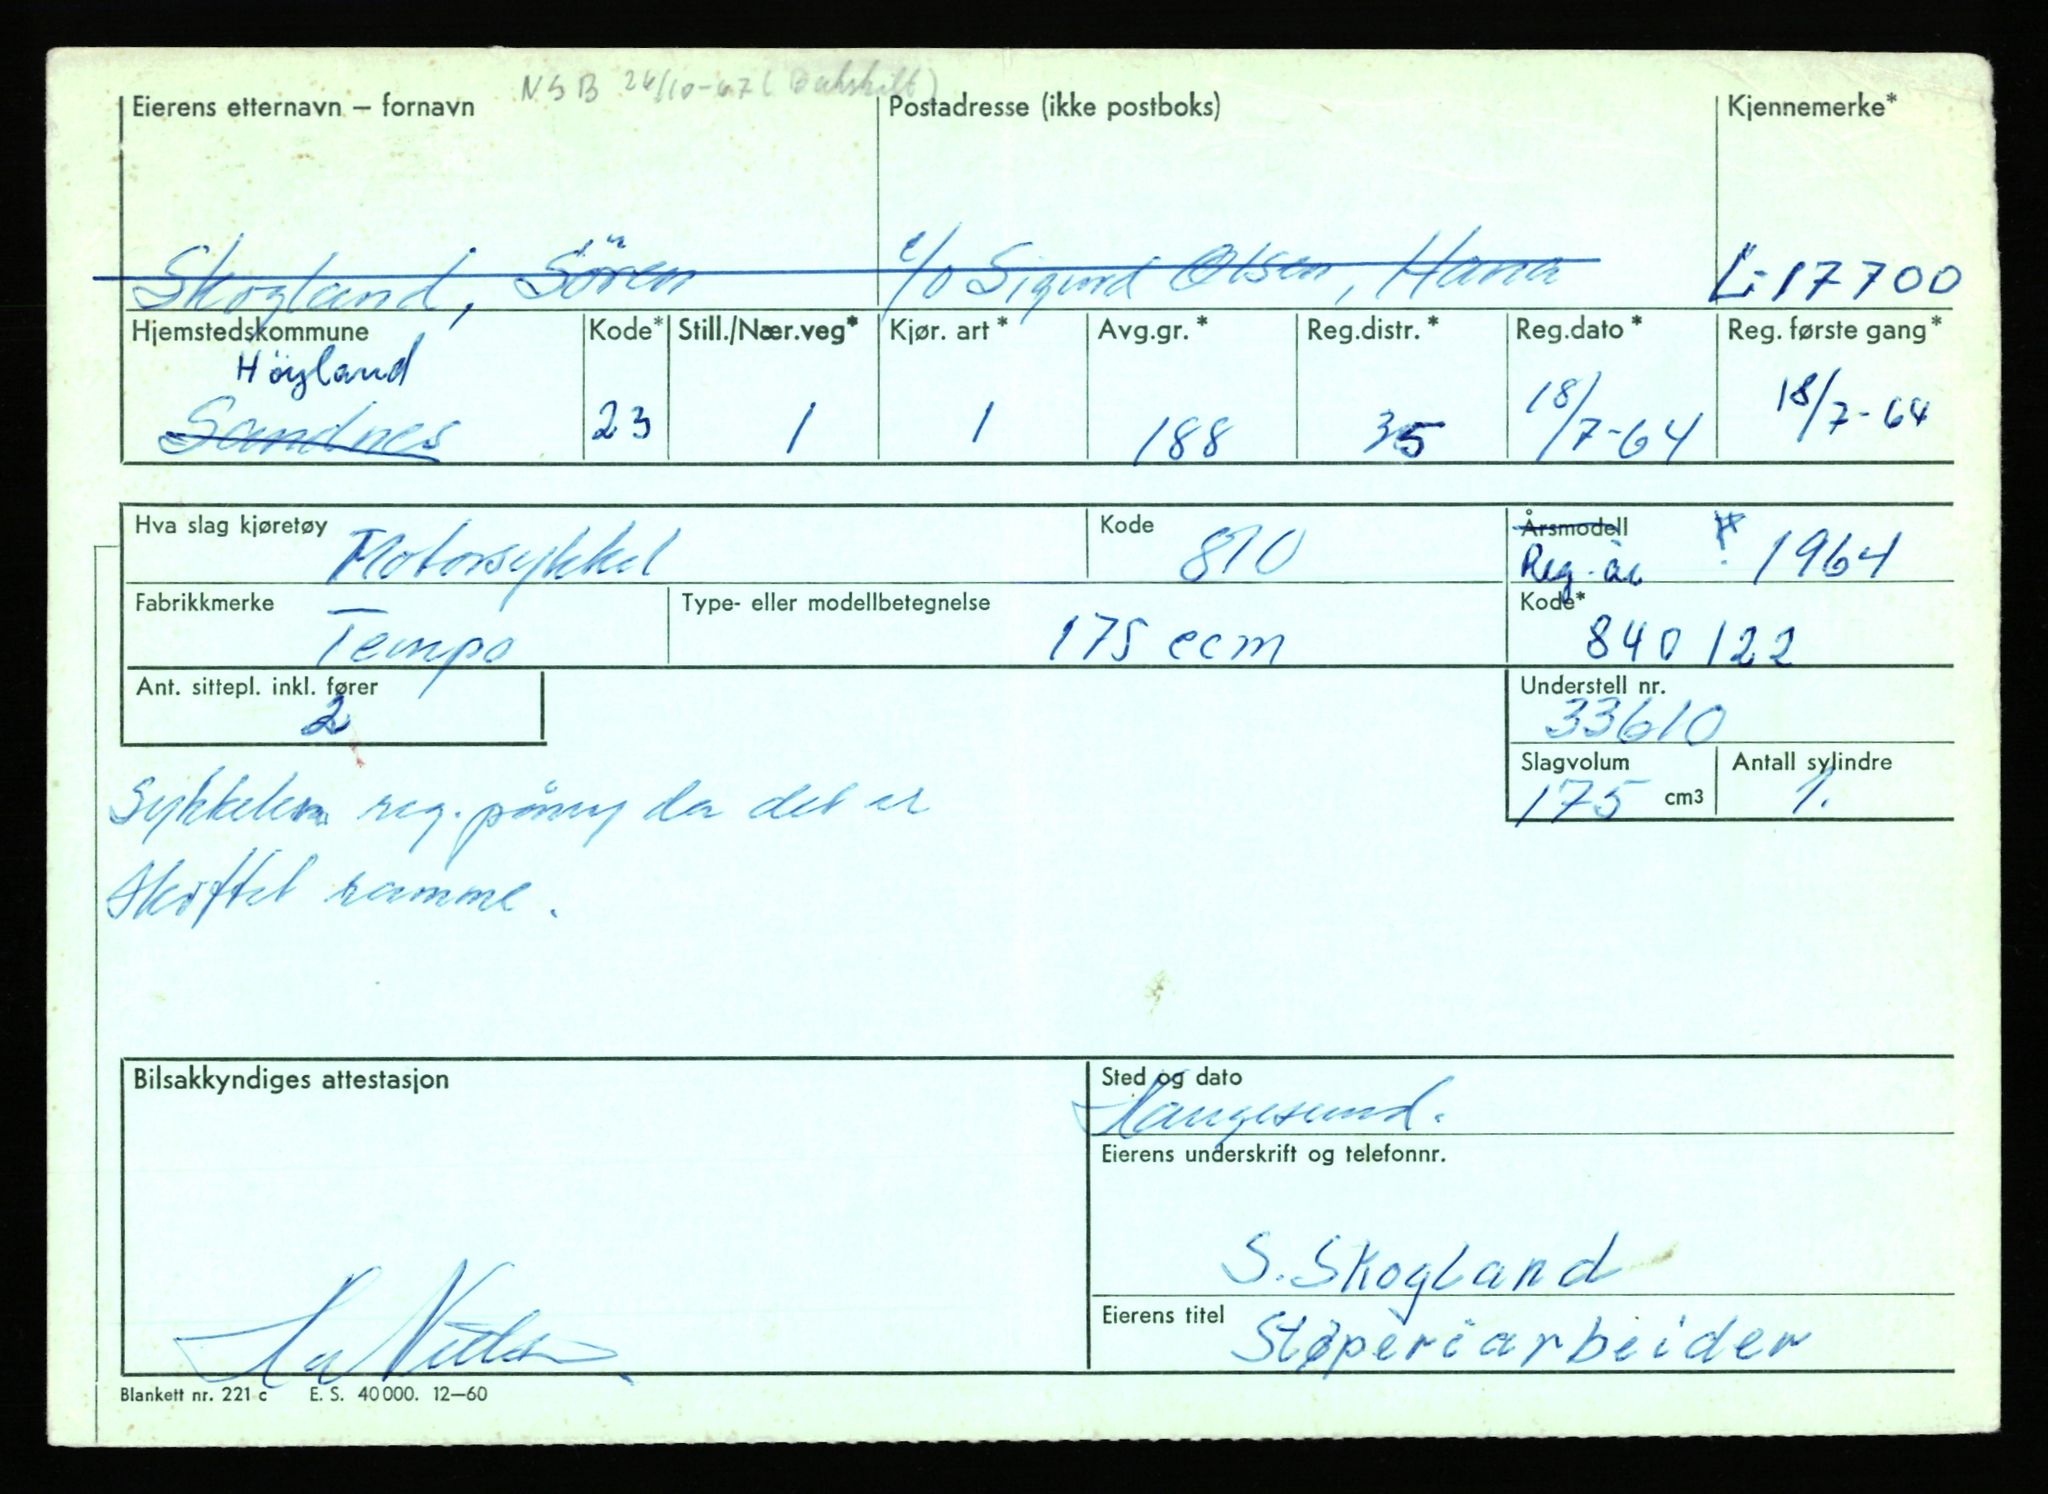 NSB 24/10-67 (Bakskilt)
Eierens etternavn – fornavn Postadresse (ikke postboks) Kjennemerke*
Skogland, Sören c/o Sigurd Olsen, Hana L-17700
Hjemstedskommune Kode* Still./Nær.veg* Kjør. art* Avg.gr.* Reg.distr.* Reg.dato* Reg. første gang*
Höyland
Sandnes 23 1 1 188 35 18/7-64 18/7-64
Hva slag kjøretøy Motorsykkel Kode 810 Årsmodell
Reg. år 1964
Fabrikkmerke Type- eller modellbetegnelse Kode*
Tempo 175 ccm 840 122
Ant. sittepl. inkl. fører Understell nr.
2 33610
Slagvolum Antall sylindre
175 cm3 1.
Sykkelen reg. påny da det er
skiftet ramme.
Bilsakkyndiges attestasjon Sted og dato
Haugesund.
Eierens underskrift og telefonnr.
S. Skogland
Eierens titel Støperiarbeider
Blankett nr. 221 c E. S. 40 000. 12–60